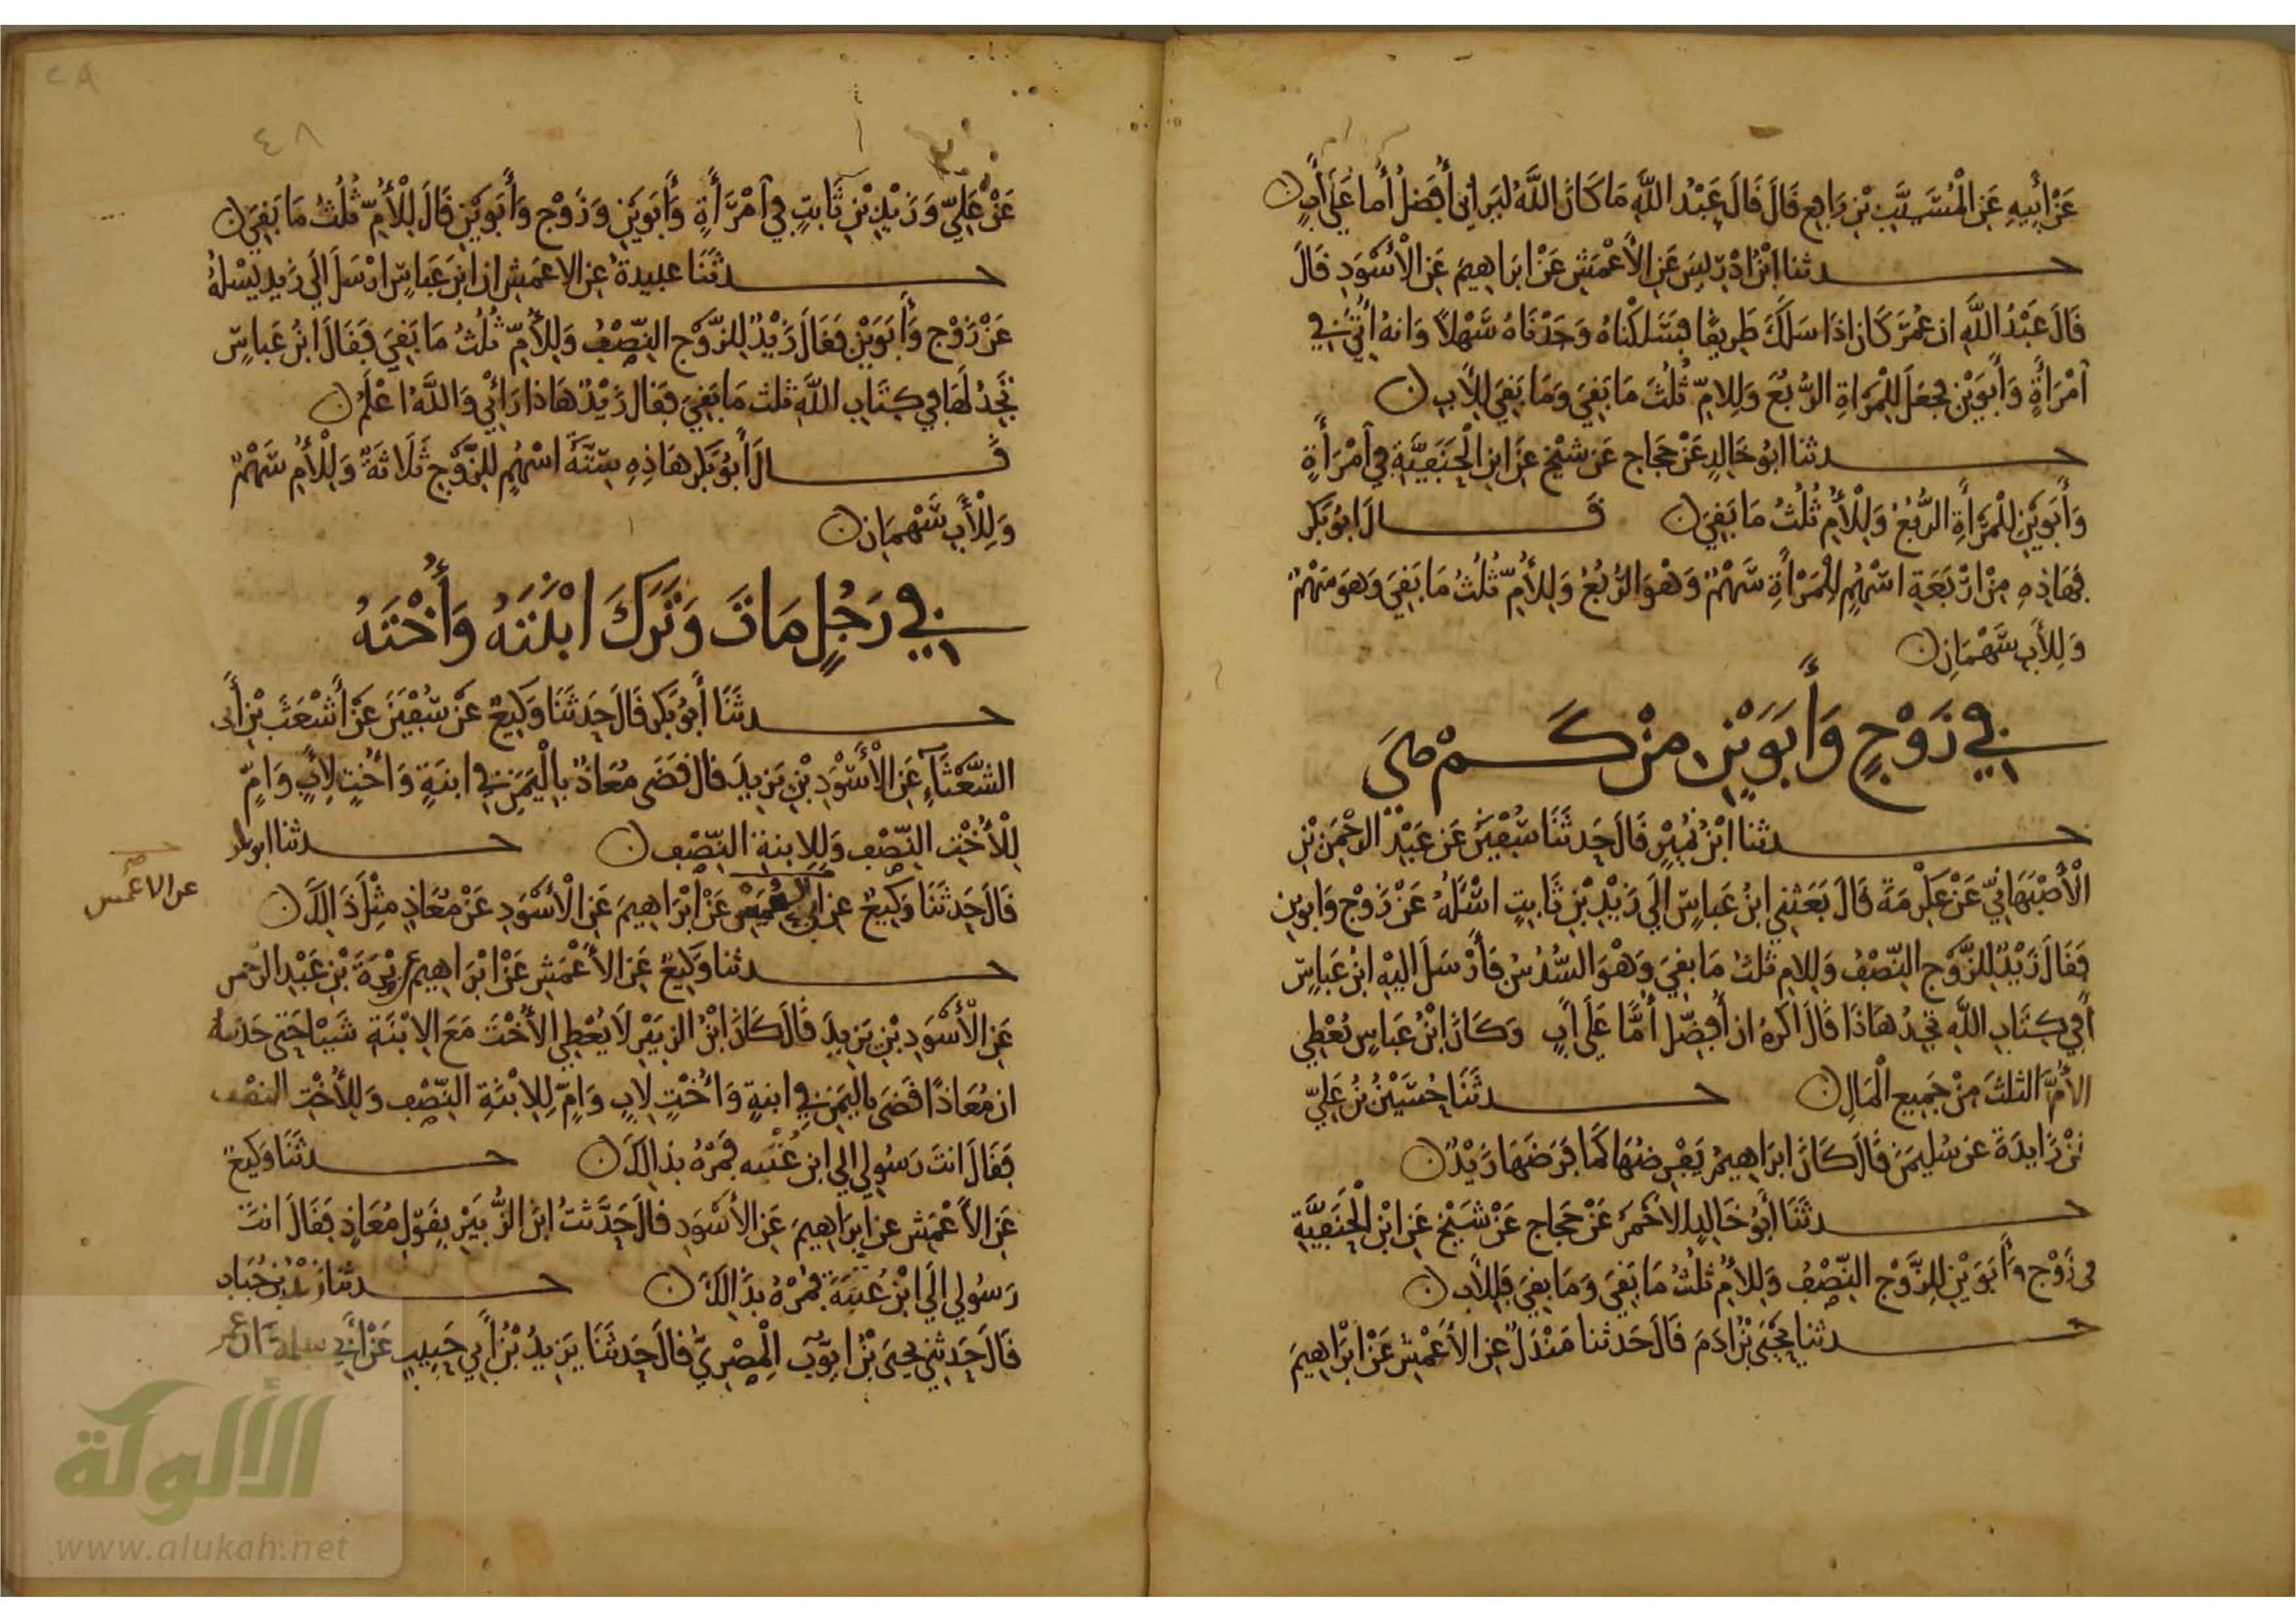 عَنْ أَبِيهِ عَنِ الْمُسَيَّبِ بْنِ رَافِعٍ قَالَ قَالَ عَبْدُ اللَّهِ مَا كَانَ اللَّهُ لِيَرَانِي أُفَضِّلُ أُمًّا عَلَى أَبٍ
حدثنا ابْنُ ادْرِيسَ عَنِ الْأَعْمَشِ عَنْ ابْرَاهِيمَ عَنِ الْأَسْوَدِ قَالَ
قَالَ عَبْدُ اللَّهِ ان عُمَرَ كَانَ اذَا سَلَكَ طَرِيقًا فَسَلَكْنَاهُ وَجَدْنَاهُ سَهْلًا وَانهُ اُتِيَ فِي
امْرَأَةٍ وَأَبَوَيْنِ فَجَعَلَ لِلْمَرْاةِ الرُّبُعَ وَلِلامِّ ثُلُثَ مَا بَقِيَ وَمَا بَقِيَ لِلْابِ
حدثنا ابُو خَالِدٍ عَنْ حَجَاجٍ عَنْ شَيْخٍ عَنِ ابْنِ الْحَنَفِيَّةِ فِي امْرَأَةٍ
وَأَبَوَيْنِ لِلْمَرْأَةِ الرُّبُعُ وَلِلْأُمِّ ثُلُثُ مَا بَقِيَ قَالَ ابُو بَكْرٍ
فَهَاذِهِ مِنْ ارْبَعَةِ اسْهُمٍ لِلْمَرْأَةِ سَهْمٌ وَهْوَ الرُّبُعُ وَلِلْأُمِّ ثُلُثُ مَا بَقِيَ وَهَوَ سَهْمٌ
وَلِلأَبِ سَهْمَانِ
فِي زَوْجٍ وَأَبَوَيْنِ مِنْ كَمْ هِيَ
حدثنا ابْنُ نُمَيْرٍ قَالَ حَدثَنَا سُفْيَنُ عَنْ عَبْدِ الرَّحْمَنِ بْنِ
الْأَصْبَهَانِيِّ عَنْ عِكْرِمَةَ قَالَ بَعَثَنِي ابْنُ عَبَاسٍ الَى زَيْدِ بْنِ ثَابِتٍ اسْئَلُهُ عَنْ زَوْجٍ وَابوين
فَقَالَ زَيْدٌ لِلزَّوْجِ النِّصْفُ وَلِلامِ ثلثُ مَا بقِيَ وَهْوَ السُّدُسُ فَأَرْسَلَ اليْهِ ابْنُ عَبَاسٍ
أَفِي كِتَابِ اللَّهِ تَجِدُ هَاذَا قَالَ اكْرَهُ ان أُفَضِّلَ أُمًّا عَلَى أَبٍ وَكَانَ ابْنُ عَبَاسٍ يُعْطِي
الأُمَّ الثلثَ مِنْ جَمِيعِ الْمَالِ حدثَنَا حُسَيْنُ بْنُ عَلِيٍّ
عَنْ زَايدَةَ عَن سُلَيمَنَ قَالَ كَانَ ابرَاهِيمُ يَفْرِضُهَا كَمَا فَرَضَهَا زَيْدٌ
حدثَنَا أَبُو خَالِدٍ الاحْمَرُ عَنْ حَجَاجٍ عَنْ شَيْخٍ عَنِ ابْنِ الْحَنَفِيَّةِ
فى زَوْجٍ وَأَبَوَيْنِ لِلزَّوْجِ النِّصْفُ وَلِلأُمِّ ثلثُ مَا بَقِيَ وَمَا بقِيَ فَلِلْأَبِ
حدثنا يَحْيَى بْنُ ادَمَ قَالَ حَدثنا مَنْدَلٌ عن الأَعْمَشِ عَنْ ابْرَاهِيمَ
٤٨
عَنْ عَلِيٍّ وَزَيْدِ بْنِ ثَابِتٍ فِي امْرَأَةٍ وَأَبَوَيْنِ وَزَوْجٍ وَأَبَوَيْنِ قَالَ لِلْأُمِّ ثُلُثُ مَا بَقِيَ
حدثَنَا عبيدةُ عن الاعمَشِ ان ابْنَ عَبَاسٍ ارْسَلَ الَى زَيدٍ يَسْلُهُ
عَنْ زَوْجٍ وَأَبَوَيْنِ فَقَالَ زَيْدٌ لِلزَّوْجِ النِّصْفُ وَلِلْأُمِّ ثُلُثُ مَا بَقِيَ فَقَالَ ابْنُ عَباسٍ
تَجِدُ لَهَا فِي كِتَابِ اللَّهِ ثلث مَا بَقِيَ فَقَالَ زَيْدٌ هَاذَا رَائْيِي وَاللَّهُ اعْلَمُ
قَالَ أَبُو بَكْرٍ هَاذِهِ سِتَّةُ اسْهُمٍ لِلزَّوْجِ ثَلَاثَةٌ وَلِلْأُمِّ سَهْمٌ
وَلِلْأَبِ سَهْمَانِ
فِي رَجُلٍ مَاتَ وَتَرَكَ ابْنَتَهُ وَأُخْتَهُ
حدثَنَا أَبُو بَكْرٍ قَالَ حَدثَنَا وَكِيعٌ عَنْ سُفْيَنَ عَنْ أَشْعَثَ بْنِ أَبِى
الشَّعْثَاءِ عَنِ الْأَسْوَدِ بْنِ يَزِيدَ قَالَ قَضَى مُعَاذٌ بِالْيَمَنِ فِي ابنَةٍ وَأُخْتٍ لِأَبٍ وَامٍّ
لِلْأُخْتِ النِّصْف وَلِلِابنةِ النِّصْف حدثنا ابو بكر
قَالَ حَدثَنَا وَكِيعٌ عن عَنْ ابْرَاهِيمَ عَنِ الْأَسْوَدِ عَنْ مُعَاذٍ مِثْلَ ذَالِكَ
عن الاعمش
حدثنا وَكِيعٌ عَنِ الأَعْمَشِ عَنْ ابْرَاهِيمَ بْنِ عَبْدِ الرحمن
عَنِ الْأَسْوَدِ بْنِ يَزِيدَ قَالَ كَانَ ابْنُ الزبَيْرِ لَا يُعْطِي الأُخْتَ مَعَ الِابْنَةِ شَيْئا حَتى حَدثته
ان مُعَاذًا قَضَى باليَمَنِ فِي ابنةٍ وَأُخْتٍ لِابٍ وَامٍّ لِلِابْنَةِ النِّصْف وَلِلْأُخْتِ النصْف
فَقَالَ انتَ رَسُولِي الى ابن عُتْبَه فَمُرْهُ بذالِكَ حدثَنَا وَكِيعٌ
عَنِ الأَعْمَشِ عن ابرَاهِيمَ عَنِ الأَسْوَدِ قَالَ حَدَّثتُ ابنَ الزُّبَيْرِ بِقَوْلِ مُعَاذٍ فَقَالَ انتَ
رَسُولِي الَى ابْنِ عُتبَةَ فَمُرْهُ بذَالِكَ حدثنا زَيْدُ بْنُ حُبَابٍ
قَالَ حَدثَنِي يحيَى بْنُ ايُّوبَ الْمِصْرِيُّ قالَ حَدثَنَا يَزِيدُ بْنُ أَبِي حَبِيبٍ عَنْ أَبِي سلمة ان عمر
الألوكة
www.alukah.net